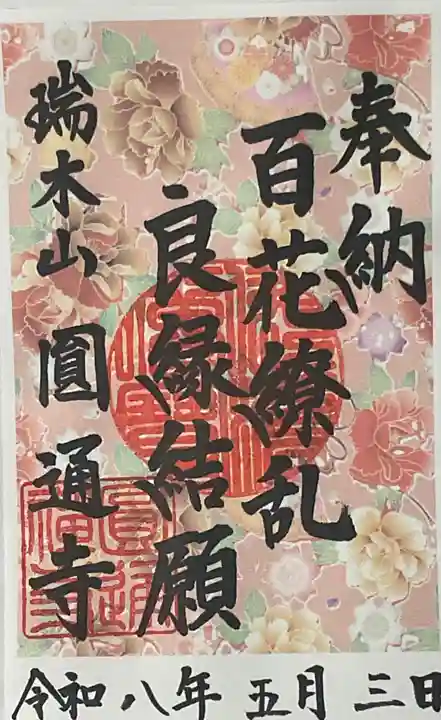 奉納
百花繚乱
良縁結願
瑞木山 圓通寺
令和八年 五月 三日